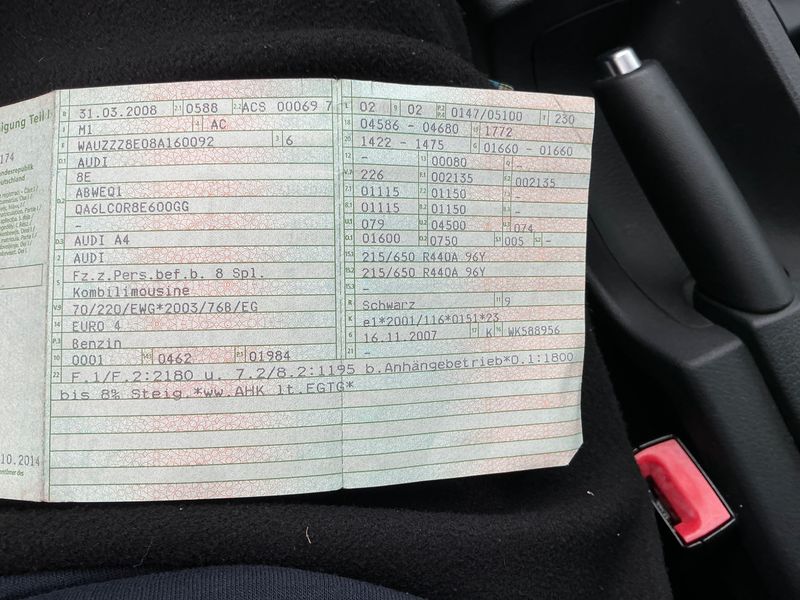 igung Teil I
174
ndesrepublik
eutschland
10.2014
B 31.03.2008 2.1 0588 2.2 ACS 00069 7
J M1 4 AC
E WAUZZZ8E08A160092 3 6
D.1 AUDI
8E
D.2 ABWEQ1
QA6LCOR8E600GG
-
D.3 AUDI A4
2 AUDI
5 Fz.z.Pers.bef.b. 8 Spl.
Kombilimousine
V.9 70/220/EWG*2003/76B/EG
14 EURO 4
P.3 Benzin
10 0001 14.1 0462 P.1 01984
L 02 9 02 P.2 P.4 0147/05100 T 230
18 04586 - 04680 19 1772
20 1422 - 1475 G 01660 - 01660
12 - 13 00080 Q -
V.7 226 F.1 002135 F.2 002135
7.1 01115 7.2 01150 7.3 -
8.1 01115 8.2 01150 8.3 -
U.1 079 U.2 04500 U.3 074
O.1 01600 O.2 0750 S.1 005 S.2 -
15.1 215/650 R440A 96Y
15.2 215/650 R440A 96Y
15.3 -
R Schwarz 11 9
K e1*2001/116*0151*23
6 16.11.2007 17 K 16 WK588956
21 -
22 F.1/F.2:2180 u. 7.2/8.2:1195 b.Anhängebetrieb*O.1:1800
bis 8% Steig.*ww.AHK lt.EGTG*